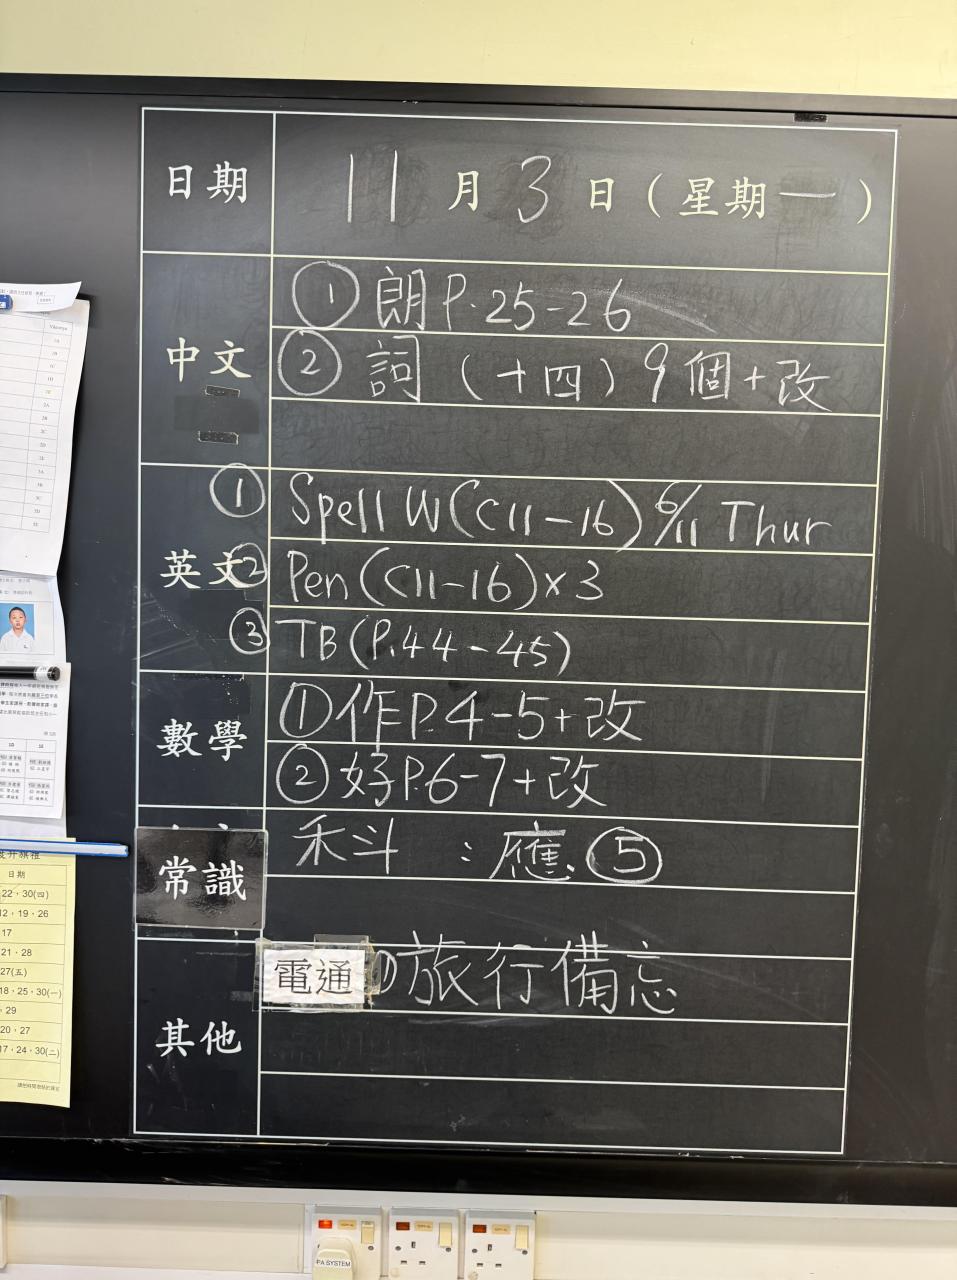 日期 11月3日(星期一)
中文
① 朗P.25-26
② 詞(十四)9個+改
英文
① Spell W(C11-16) 6/11 Thur
② Pen(C11-16)×3
③ TB(P.44-45)
數學
① 作P.4-5+改
② 好P.6-7+改
常識
科 : 應⑤
其他
電通 ① 旅行備忘
日期
22,30(四)
12,19,26
17
21,28
27(五)
18,25,30(一)
,29
20,27
17,24,30(二)
PA SYSTEM